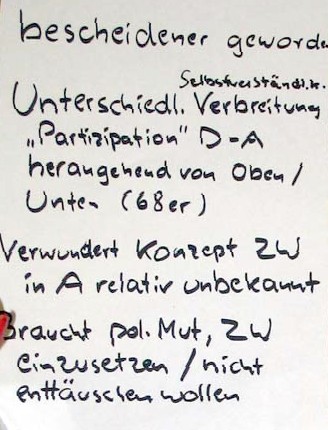 bescheidener geworde
Selbstverständlk.
Unterschiedl. Verbreitung
„Partizipation" D-A
herangehend von Oben /
Unten (68er)
Verwundert Konzept ZW
in A relativ unbekannt
Braucht pol. Mut, ZW
einzusetzen / nicht
enttäuschen wollen